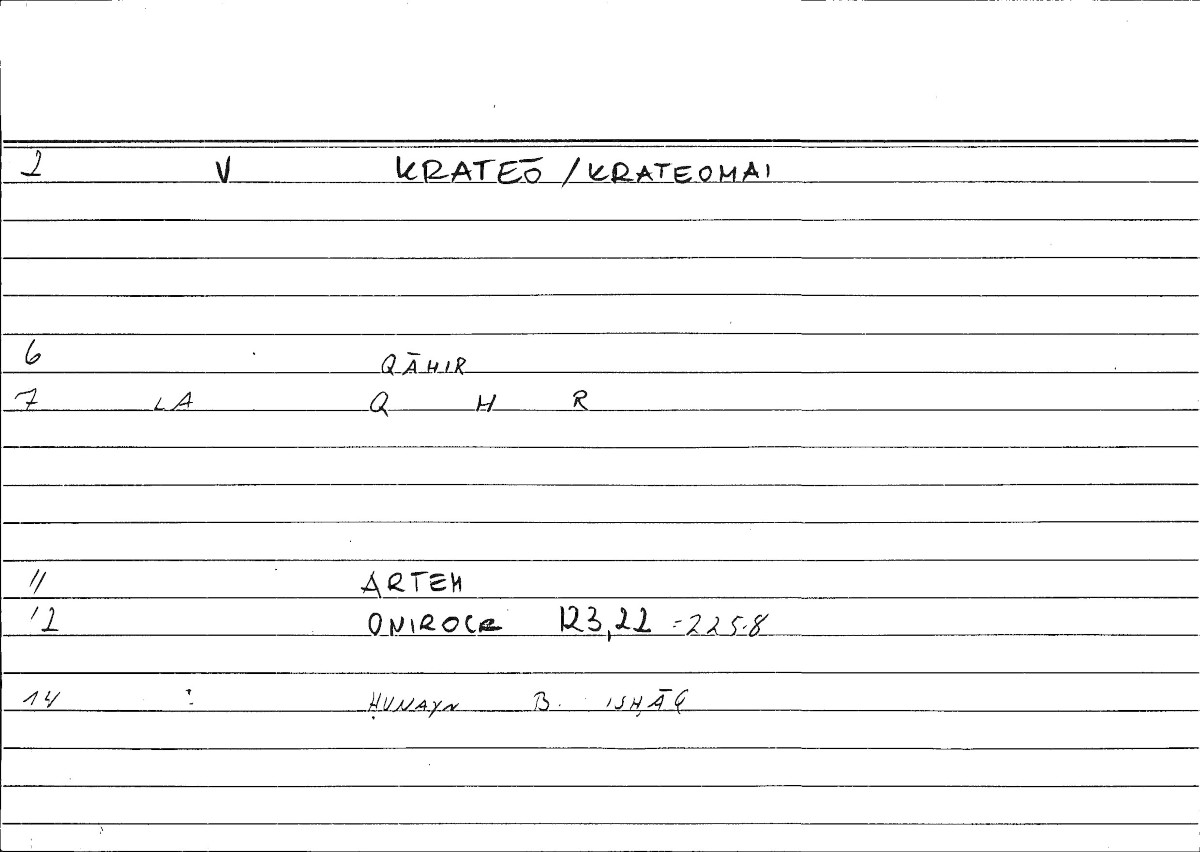 2 V KRATEŌ / KRATEOMAI
6 QĀHIR
7 LA Q H R
11 ARTEM
12 ONIROCR 123,22 =225.8
14 : ḤUNAYN B. ISḤĀQ